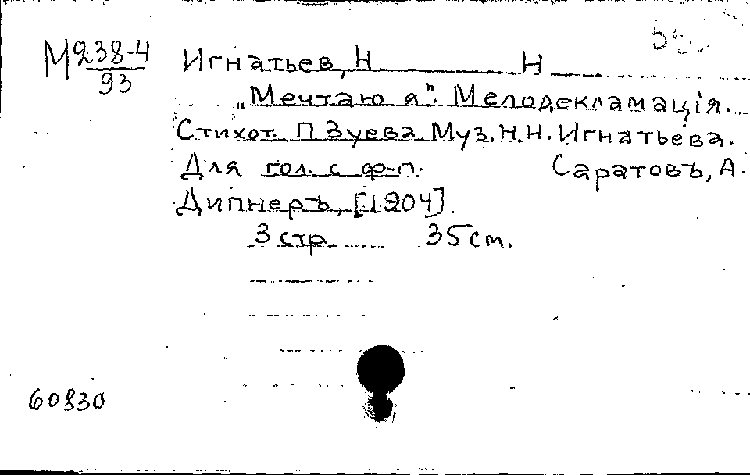 М 238-4
93
Игнатьев, Н Н
„Мечтаю я”. Мелодекламація.
Стихот. П Зуева Муз. Н. Н. Игнатьева.
Для гол. с ф-п. Саратовъ, А.
Дипнеръ, [1904].
3 стр 35 см.
60830